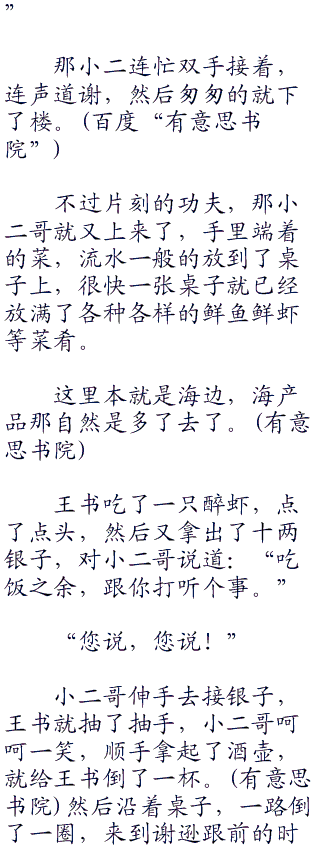 ”
那小二连忙双手接着，
连声道谢，然后匆匆的就下
了楼。(百度“有意思书
院”)
不过片刻的功夫，那小
二哥就又上来了，手里端着
的菜，流水一般的放到了桌
子上，很快一张桌子就已经
放满了各种各样的鲜鱼鲜虾
等菜肴。
这里本就是海边，海产
品那自然是多了去了。(有意
思书院)
王书吃了一只醉虾，点
了点头，然后又拿出了十两
银子，对小二哥说道：“吃
饭之余，跟你打听个事。”
“您说，您说！”
小二哥伸手去接银子，
王书就抽了抽手，小二哥呵
呵一笑，顺手拿起了酒壶，
就给王书倒了一杯。(有意思
书院)然后沿着桌子，一路倒
了一圈，来到谢逊跟前的时